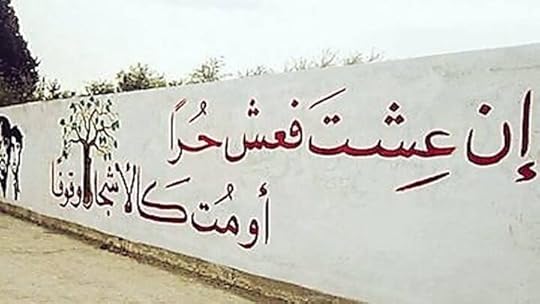 إن عِشتَ فعش حُرًا
أو مُت كَالأشجار وقوفا